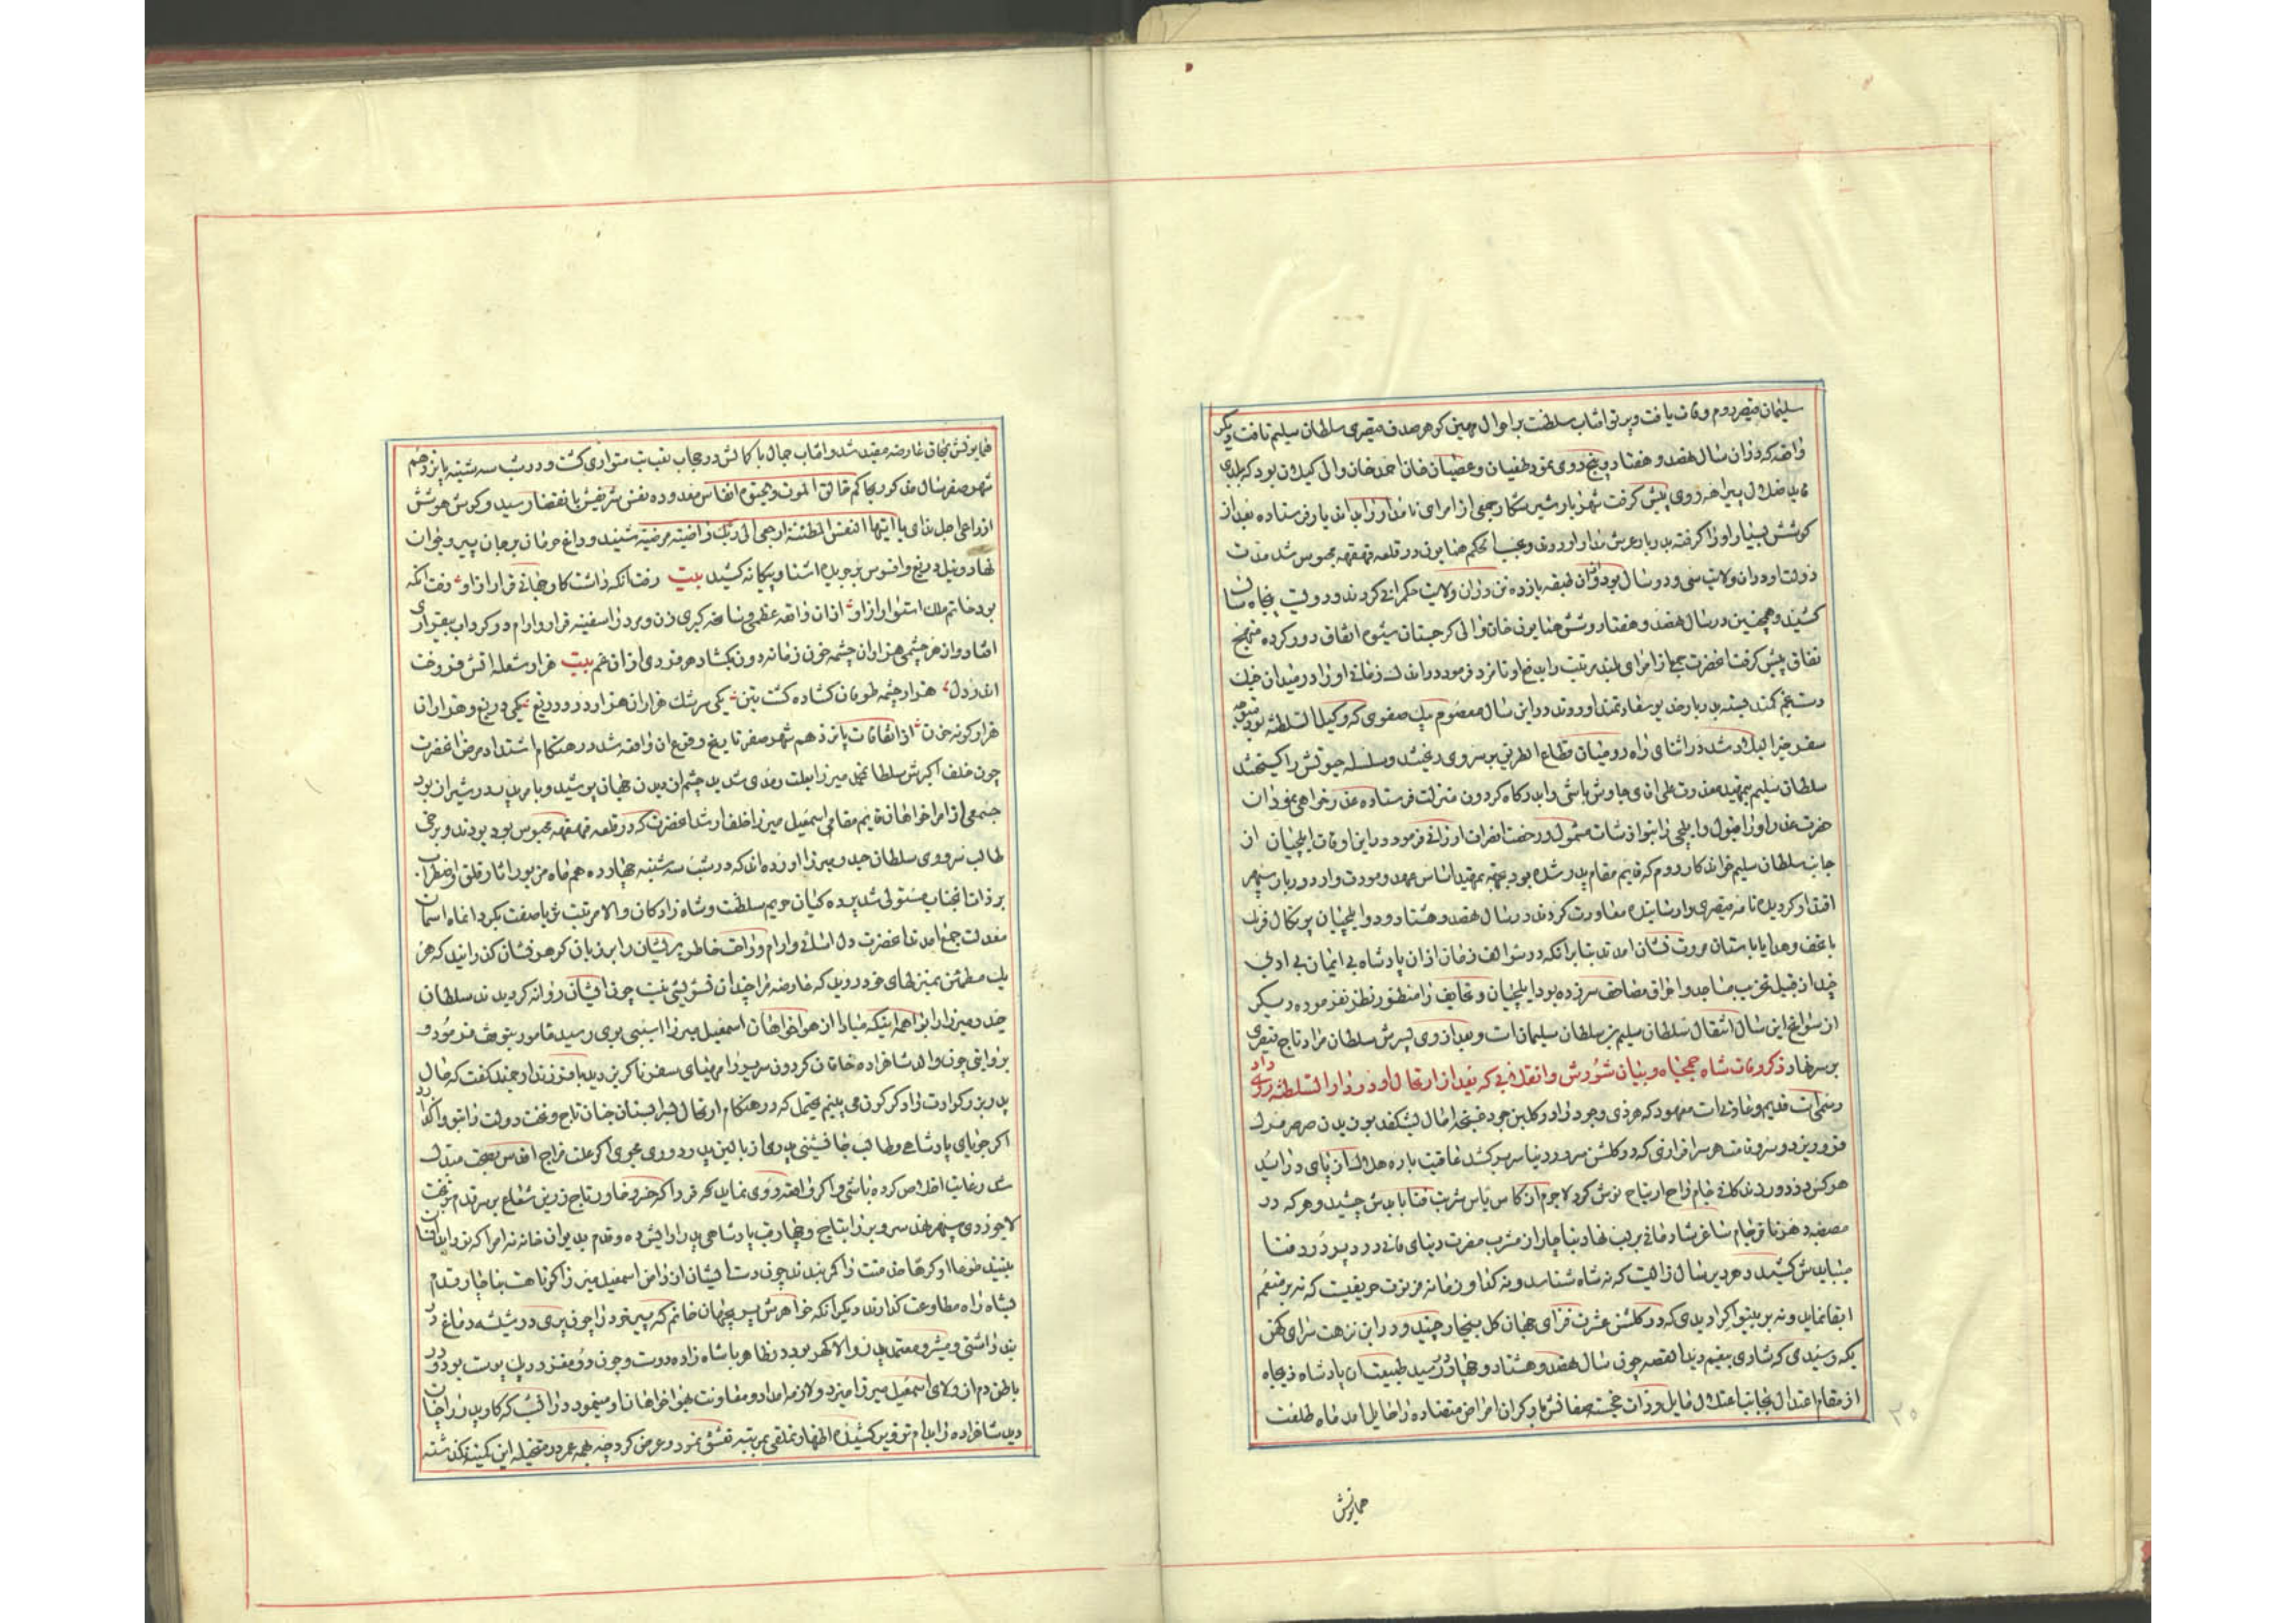 سلیمان قیصر دوم وفات یافت و پرتو افتاب سلطنت بر احوال مهین کوهر صدف قیصری سلطان سلیم تافت دیکر
واقعه که دران سال هفصد و هفتاد و پنج روی نمود طغیان و عصیان خان احمد خان والی کیلان بود که
ضلال پیرامه روی پیش کرفت شهریار شیر شکار جمعی از امرای نامدار را بدان دیار فرستاده بعد از
کوشش بسیار او را کرفته بدربار عرش مدار اوردند و حسب الحکم همایون در قلعه قهقهه محبوس شد مدت
دولت او دران ولایت سی و دو سال بود و ازان طبقه یازده تن دران ولایت حکمرانی کردند و دویست پنجاه سال
کشید و همچنین در سال هفصد و هفتاد و شش همایونی خان والی کرجستان سیوم اتفاق دور کرده منهج
نفاق پیش کرفت اعضرت جمعی از امرای بلند مرتبت را بدفع او نامزد فرمود در اندک زمانی او را در میدان جنک
دستخم کمند بسته بدربار خدیو سعادتمند اوردند و در این سال معصوم بیک صفوی که وکیل السلطنه بود متوجه
سفر خیر البلاد شد در اثنای راه رومیان قطاع الطریق بر سر وی ریختند و سلسله حیوتش را کسیختند
سلطان سلیم بتمهید معذرت علی اقای چاوش باشی را بدرکاه کردون منزلت فرستاده عذر خواهی نمود ان
حضرت عذر او را قبول و ایلچی را بنوازشات مشمول و رخصت انصراف ارزانی فرمود در این اوقات ایلچیان از
جانب سلطان سلیم خواندکار روم که قایم مقام پدر شده بود بجهة تمهید اساس عهد و مودت وارد دربار سپهر
اقتدار کردیده نامه قیصری را رسانیده معاودت کردند در سال هفصد و هشتاد و دو ایلچیان پرتکال فرنک
با تحف و هدایا باستان مروت نشان امدند بنابر انکه در سوالف زمان ازان پادشاه بی ایمان بی ادبی
چند از قبیل تخریب مساجد و احراق مصاحف سر زده بود ایلچیان و تحایف را منظور نظر نفرموده دیکر
از سوانح این سال انتقال سلطان سلیم بن سلطان سلیمان است و بعد از وی پسرش سلطان مراد تاج قیصری
بر سر نهاد ذکر وفات شاه جمجاه و بیان شورش و انقلابی که بعد از ارتحال او در دار السلطنه روی داد
رسمی است قدیم و عادتی است معهود که هر ذی وجود را در کلبن جود غنچه امال نشکفد بوزیدن صرصر مرک
فرو ریزد و سرو قامت هر سرافرازی که در کلشن سرور دنیا سر بر کشد عاقبت باره هلاک از پای در اید
هر کس در دور زندکانی جام راح ارتیاح نوش کرد لاجرم ان کاس یاس شربت فنا بایدش چشید و هر که در
مصطبه دهر ناقرجام ساغر شادمانی بر لب نهاد بناچار از مشرب مضرت دنیای فانی درد پر درد فنا
میبایدش کشید دهر دیرینه سال زالیست که نه شاه شناسد و نه کدا و زمانه مزورت حریفیست که نه بر منعم
ابقا نماید و نه بر بینوا کرا دیدی که در کلشن عشرت فزای جهان کل بیخار چید و در این نزهت سرای کهن
بکه رسیدی که شادی بیغم دید القصه چون سال هفصد و هشتاد و چهار در رسید طبیعت ان پادشاه ذیجاه
از مقام اعتدال بجانب اعتلال مایل و ذات خجسته صفاتش بار کران امراض متضاده را حامل امد ماه طلعت
همایونش
همایونش بمحاق عارضه مقید شد و افتاب جمال با کمالش در حجاب نقب تب متواری کشت و در شب سه شنبه پانزدهم
شهر صفر سال مذکور بحاکم خالق الموت و بحتوم انفاس معدوده نفس شریفش بانقضا رسید و کوش هوشش
از داعی اجل ندای یا ایتها النفس المطئنة ارجعی الی ربک راضیته مرضیة شنید و داغ حرمان بر جان پیر و جوان
نهاد و نیل دریغ و افسوس بر جریده اشنا و بیکانه کشید بیت رفت انکه داشت کار جهانی قرار ازاو رفت انکه
بود خاتم ملک استوار ازاو ازان واقعه عظمی و سانحه کبری زن و مرد را سفینه قرار و ارام در کرداب بیقراری
افتاد و از هر چشمی هزاران چشمه خون زمانه دون بکشاد هر فردی ازان غم بیت هزار شعله اتش فروخت
اندر دل هزار چشمه طوفان کشاده کشت بتن یکی سرشک هزاران هزار درد و دریغ یکی دریغ و هزاران
هزار کونه حزن از اتفاقات پانزدهم شهر صفر تاریخ وقوع ان واقعه شد در هنکام اشتداد مرض اعضرت
چون خلف اکبرش سلطان محمد میرزا بعلت رمدی شدید چشم از دیدن جهان پوشید و بامر پدر در شیراز بود
جمعی از امرا خواهان قایم مقامی اسمعیل میرزا خلف ارشد اعضرت که در قلعه قهقهه محبوس بود بودند و برخی
طالب سروری سلطان حیدر میرزا اورده اند که در شب سه شنبه چهارده هم ماه مزبور اثار قلق و اضطراب
بر ذات انجناب مستولی شد پرده کیان حریم سلطنت و شاه زادکان والا مرتبت ثریا صفت بکرد انماه اسمان
معدلت جمع امدند اعضرت دل اسائی و ارام و راحت خاطر پریشان را بر زبان کوهر فشان کذرانید که هر
یک مطمئن بمنزلهای خود روید که عارضه مرا چندان تشویشی نیست چون ایشان روانه کردیدند سلطان
حیدر میرزا را بواهمه اینکه مبادا از هواخواهان اسمعیل میرزا اسیبی بوی رسید مامور بتوقف فرمود و
بروایتی چون والده شاهزاده خاقان کردون سریر را مهیای سفر ناکزیر دید با فرزند ارجمند کفت که حال
پدر بزرکوارت را دکرکون می بینم محتمل که در هنکام ارتحال بسرابستان جنان تاج و تخت دولت را بتو واکذارد
اکر جویای پادشاهی و طالب جانشینی پدری از بالین پدر دوری مجوی اکر علت مزاج اقدس بصحت مبدل
شد رعایت اخلاص کرده باشی و اکر واقعه روی نماید سحر فردا که خسرو خاور تاج زرین شعاع بر سر قدم بر تخت
لاجوردی سپهر نهد سر و بر را بتاج و چهارقب پادشاهی بیارایش ده و قدم بدیوان خانه نه امرا که تو را بدان
بینند طوعا او کرها خدمتت را کمر بندند چون دست ایشان از دامن اسمعیل میرزا کوتاهست بناچار قدم
بشاه راه مطاوعت کذارند دیکر انکه خواهرش پریجهان خانم که پسر خود را چون پری در شیشه دماغ در
بند داشتی و مشیر و معتمد پدر والا کهر بود در ظاهر با شاه زاده دوست و چون دو مغز در یک پوست بود و در
باطن دم از ولای اسمعیل میرزا میزد و لازمه امداد و معاونت هواخواهان او مینمود در انشب که کار بدر اجان
دید شاهزاده را بدام تزویر کشیده اظهار تملقی بمرتبه تعشق نمود و عرض کرد چه همه عمر در متخیله این کمینه نکذشته